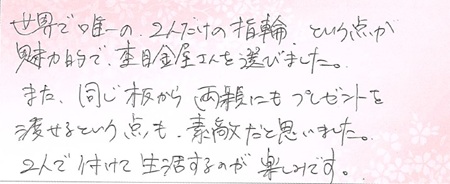 世界で唯一の、2人だけの指輪、という点が
魅力的で、杢目金屋さんを選びました。
また、同じ板から両親にもプレゼントを
渡せるという点も、素敵だと思いました。
2人で付けて生活するのが楽しみです。